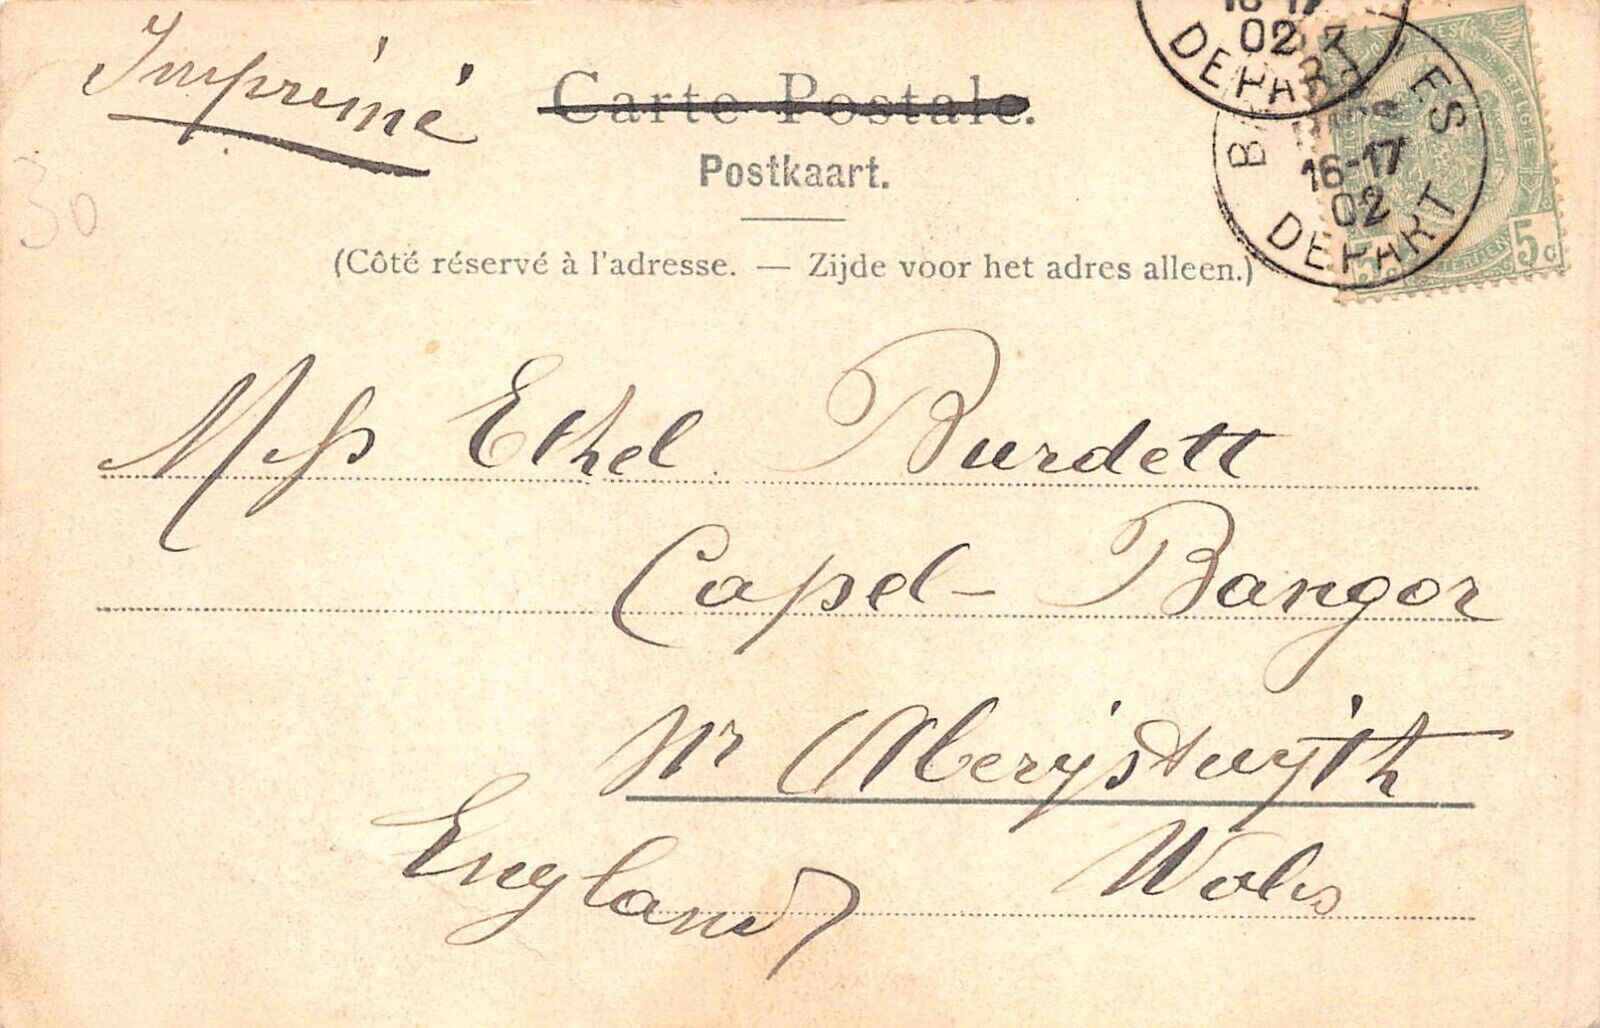 Imprimé
Carte Postale.
Postkaart.
(Côté réservé à l'adresse. — Zijde voor het adres alleen.)
16-17
02
DEPART
16-17
02
DEPART
5c
30
Miss Ethel Burdett
Capel-Bangor
nr Aberystwyth
England Wales